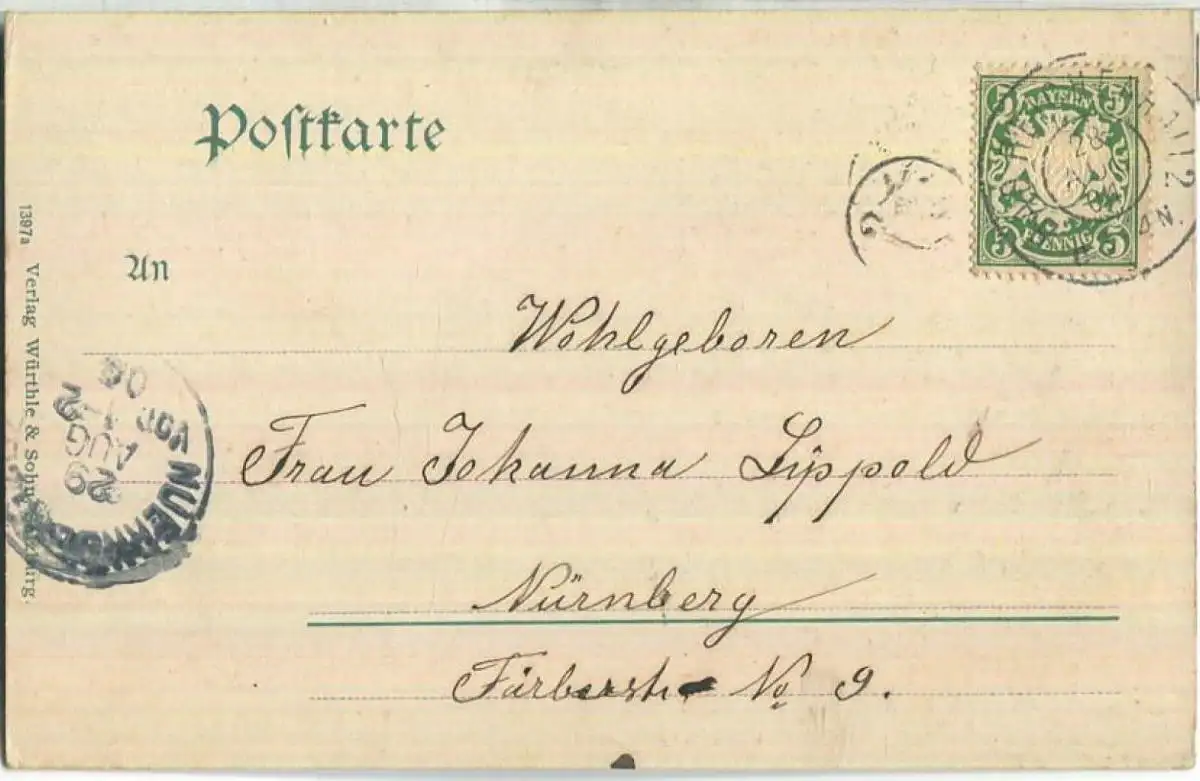 Postkarte
5 BAYERN 5
5 PFENNIG 5
An
Wohlgeboren
Frau Johanna Lippold
Nürnberg
Färberstr No 9.
1397a Verlag Würthle & Sohn
NUERNBERG
29
AUG
VOR